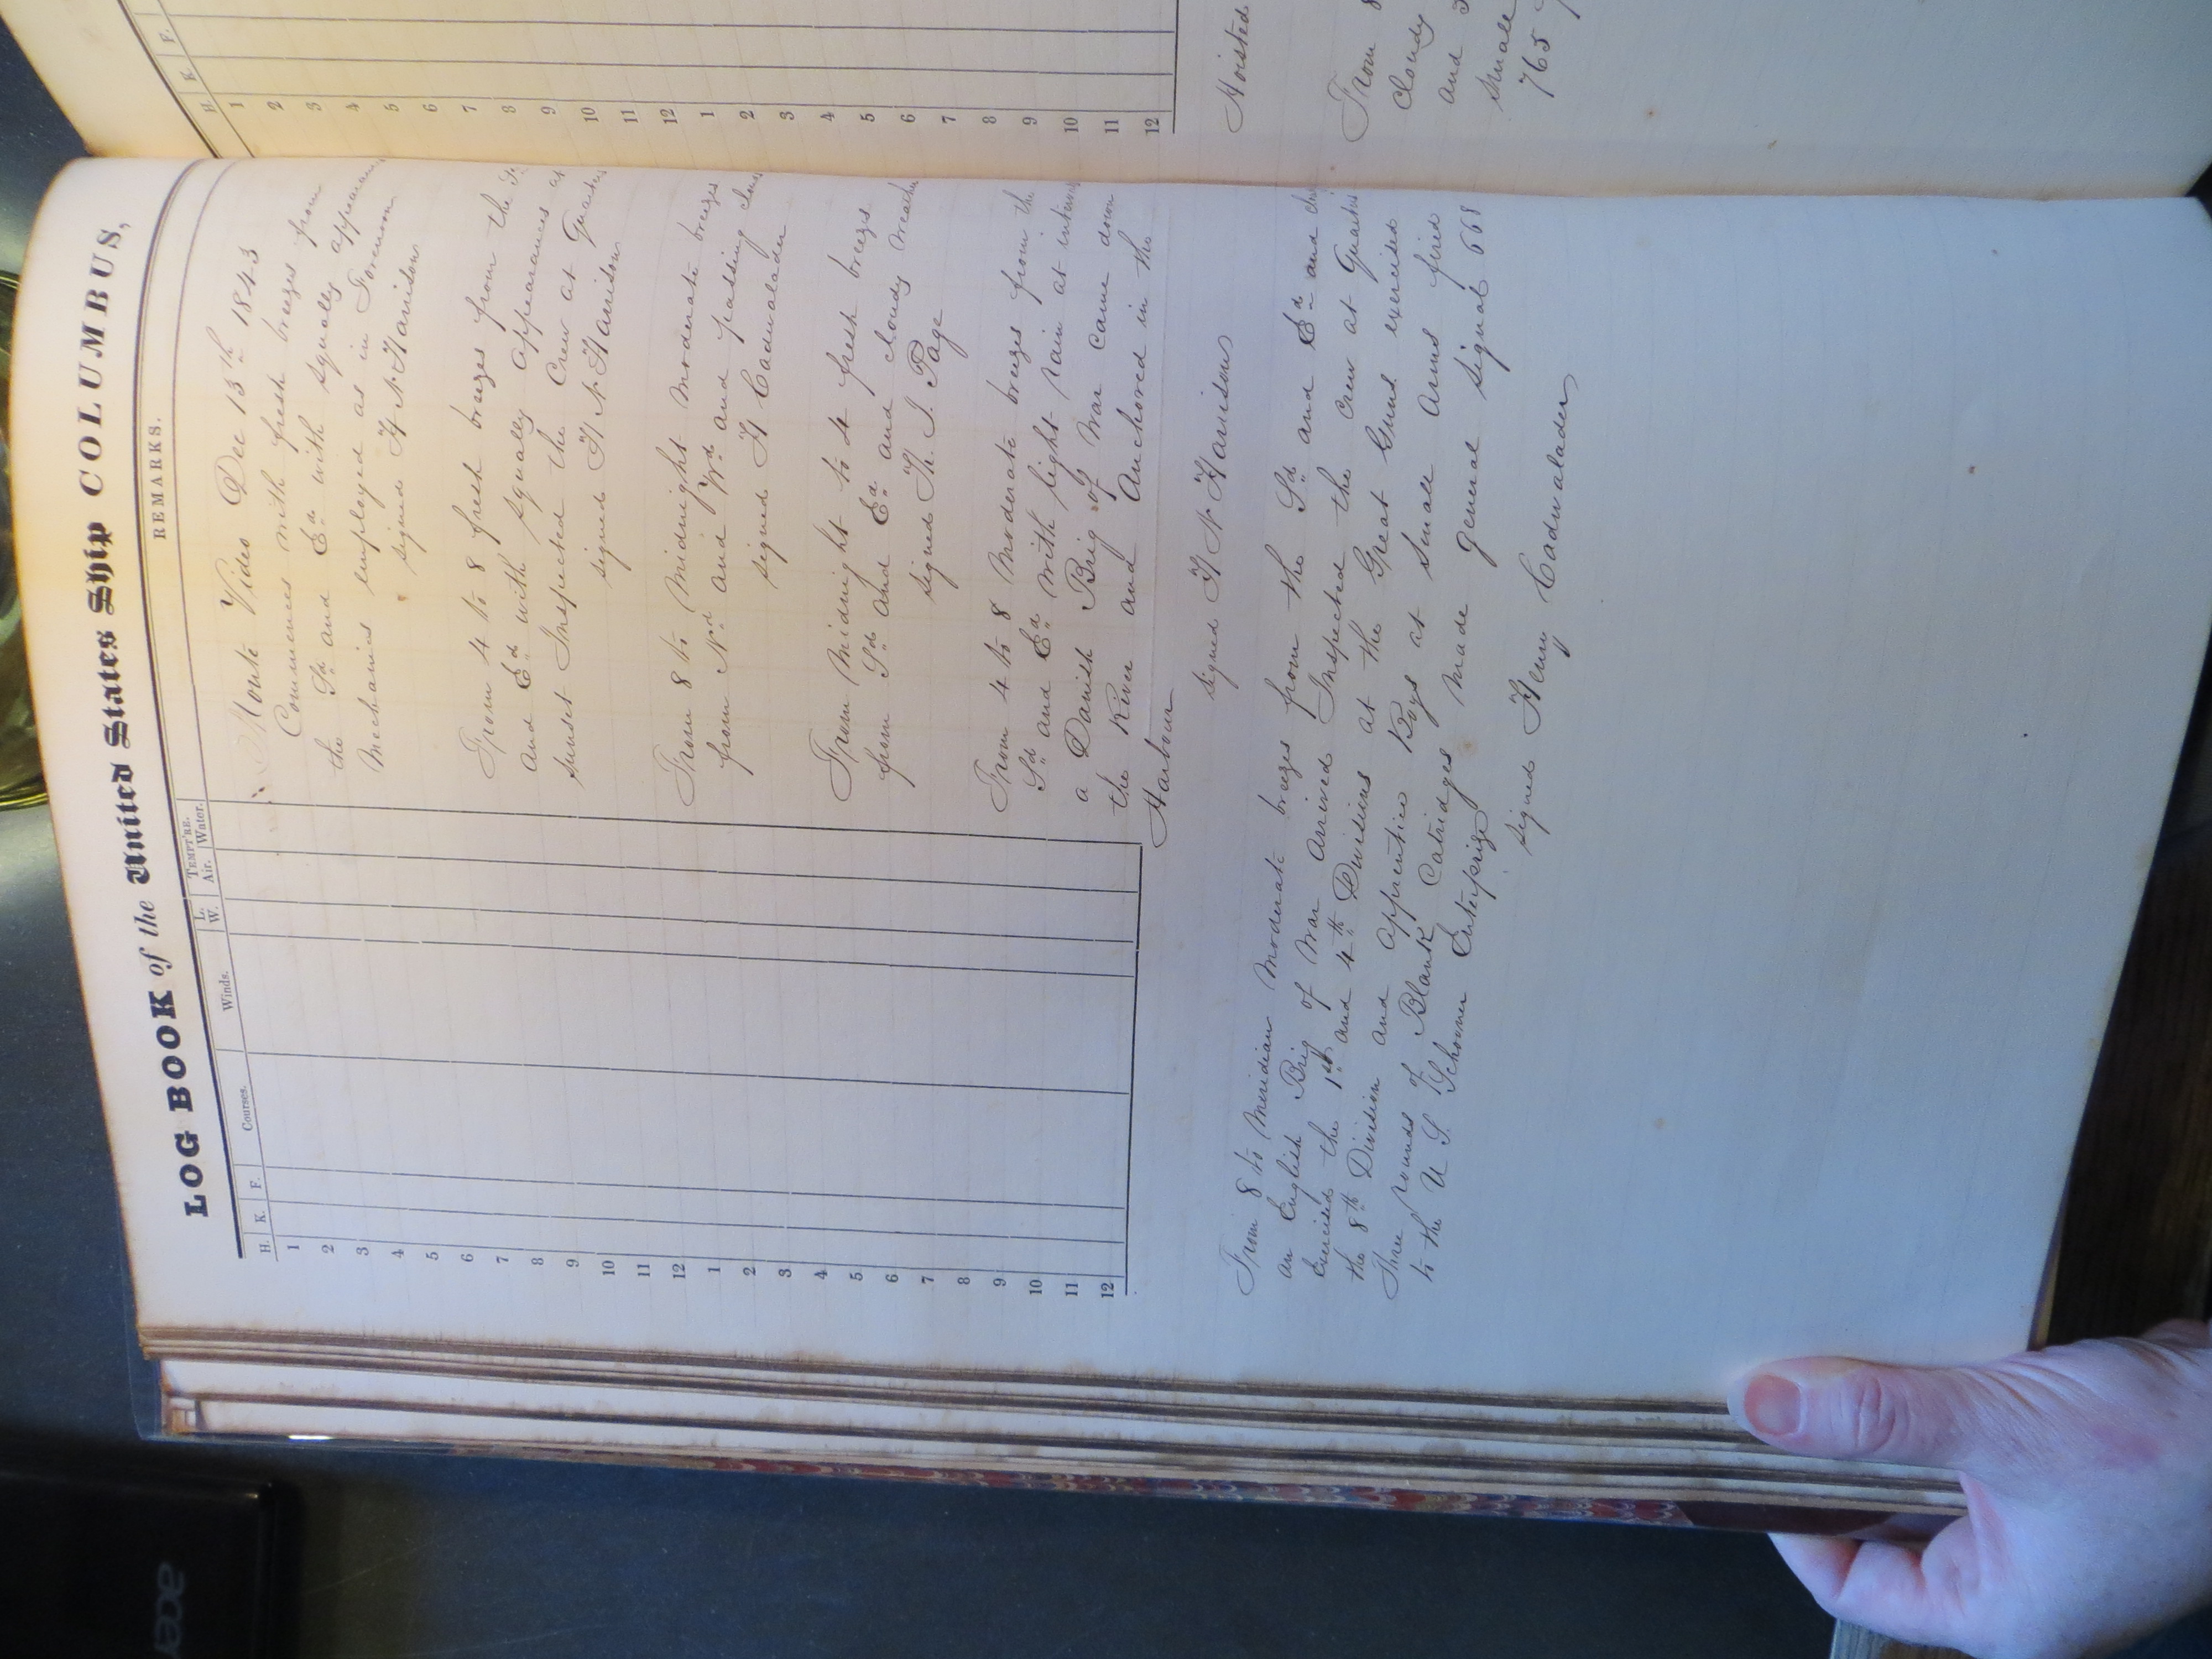 LOG BOOK of the United States Ship COLUMBUS,
H. K. F. Courses. Winds. L. W. TEMPT'RE. Air. Water. REMARKS.
1
2
3
4
5
6
7
8
9
10
11
12
1
2
3
4
5
6
7
8
9
10
11
12
Monte Video Dec 13th 1843
Commences with fresh breezes from
the Sd and Ed with squally
Mechanics employed as in Forenoon
signed H N Harrison
From 4 to 8 fresh breezes from the
and Ed with squally appearances at
sunset Inspected the Crew at Quarters
signed H N Harrison
From 8 to Midnight Moderate breezes
from Nd and Wd and passing
signed H Cadwalader
From Midnight to 4 fresh breezes
from Sd and Ed and cloudy weather
signed Th. J. Page
From 4 to 8 Moderate breezes from the
Sd and Ed with light rain at
a Danish Brig of War came down
the River and Anchored in the
Harbour
signed H N Harrison
From 8 to Meridian Moderate breezes from the Sd and Ed and
an English Brig of War arrived Inspected the Crew at Quarters
Exercised the 1st and 4th Divisions at the Great Guns exercised
the 8th Division and apprentice Boys at Small Arms fired
Three rounds of Blank Catridges Made general signal 668
to the U S Schooner Enterprize
signed Henry Cadwalader
H. K. F.
1
2
3
4
5
6
7
8
9
10
11
12
1
2
3
4
5
6
7
8
9
10
11
12
Hoisted
From 8
Cloudy
and 3
small
765
acer